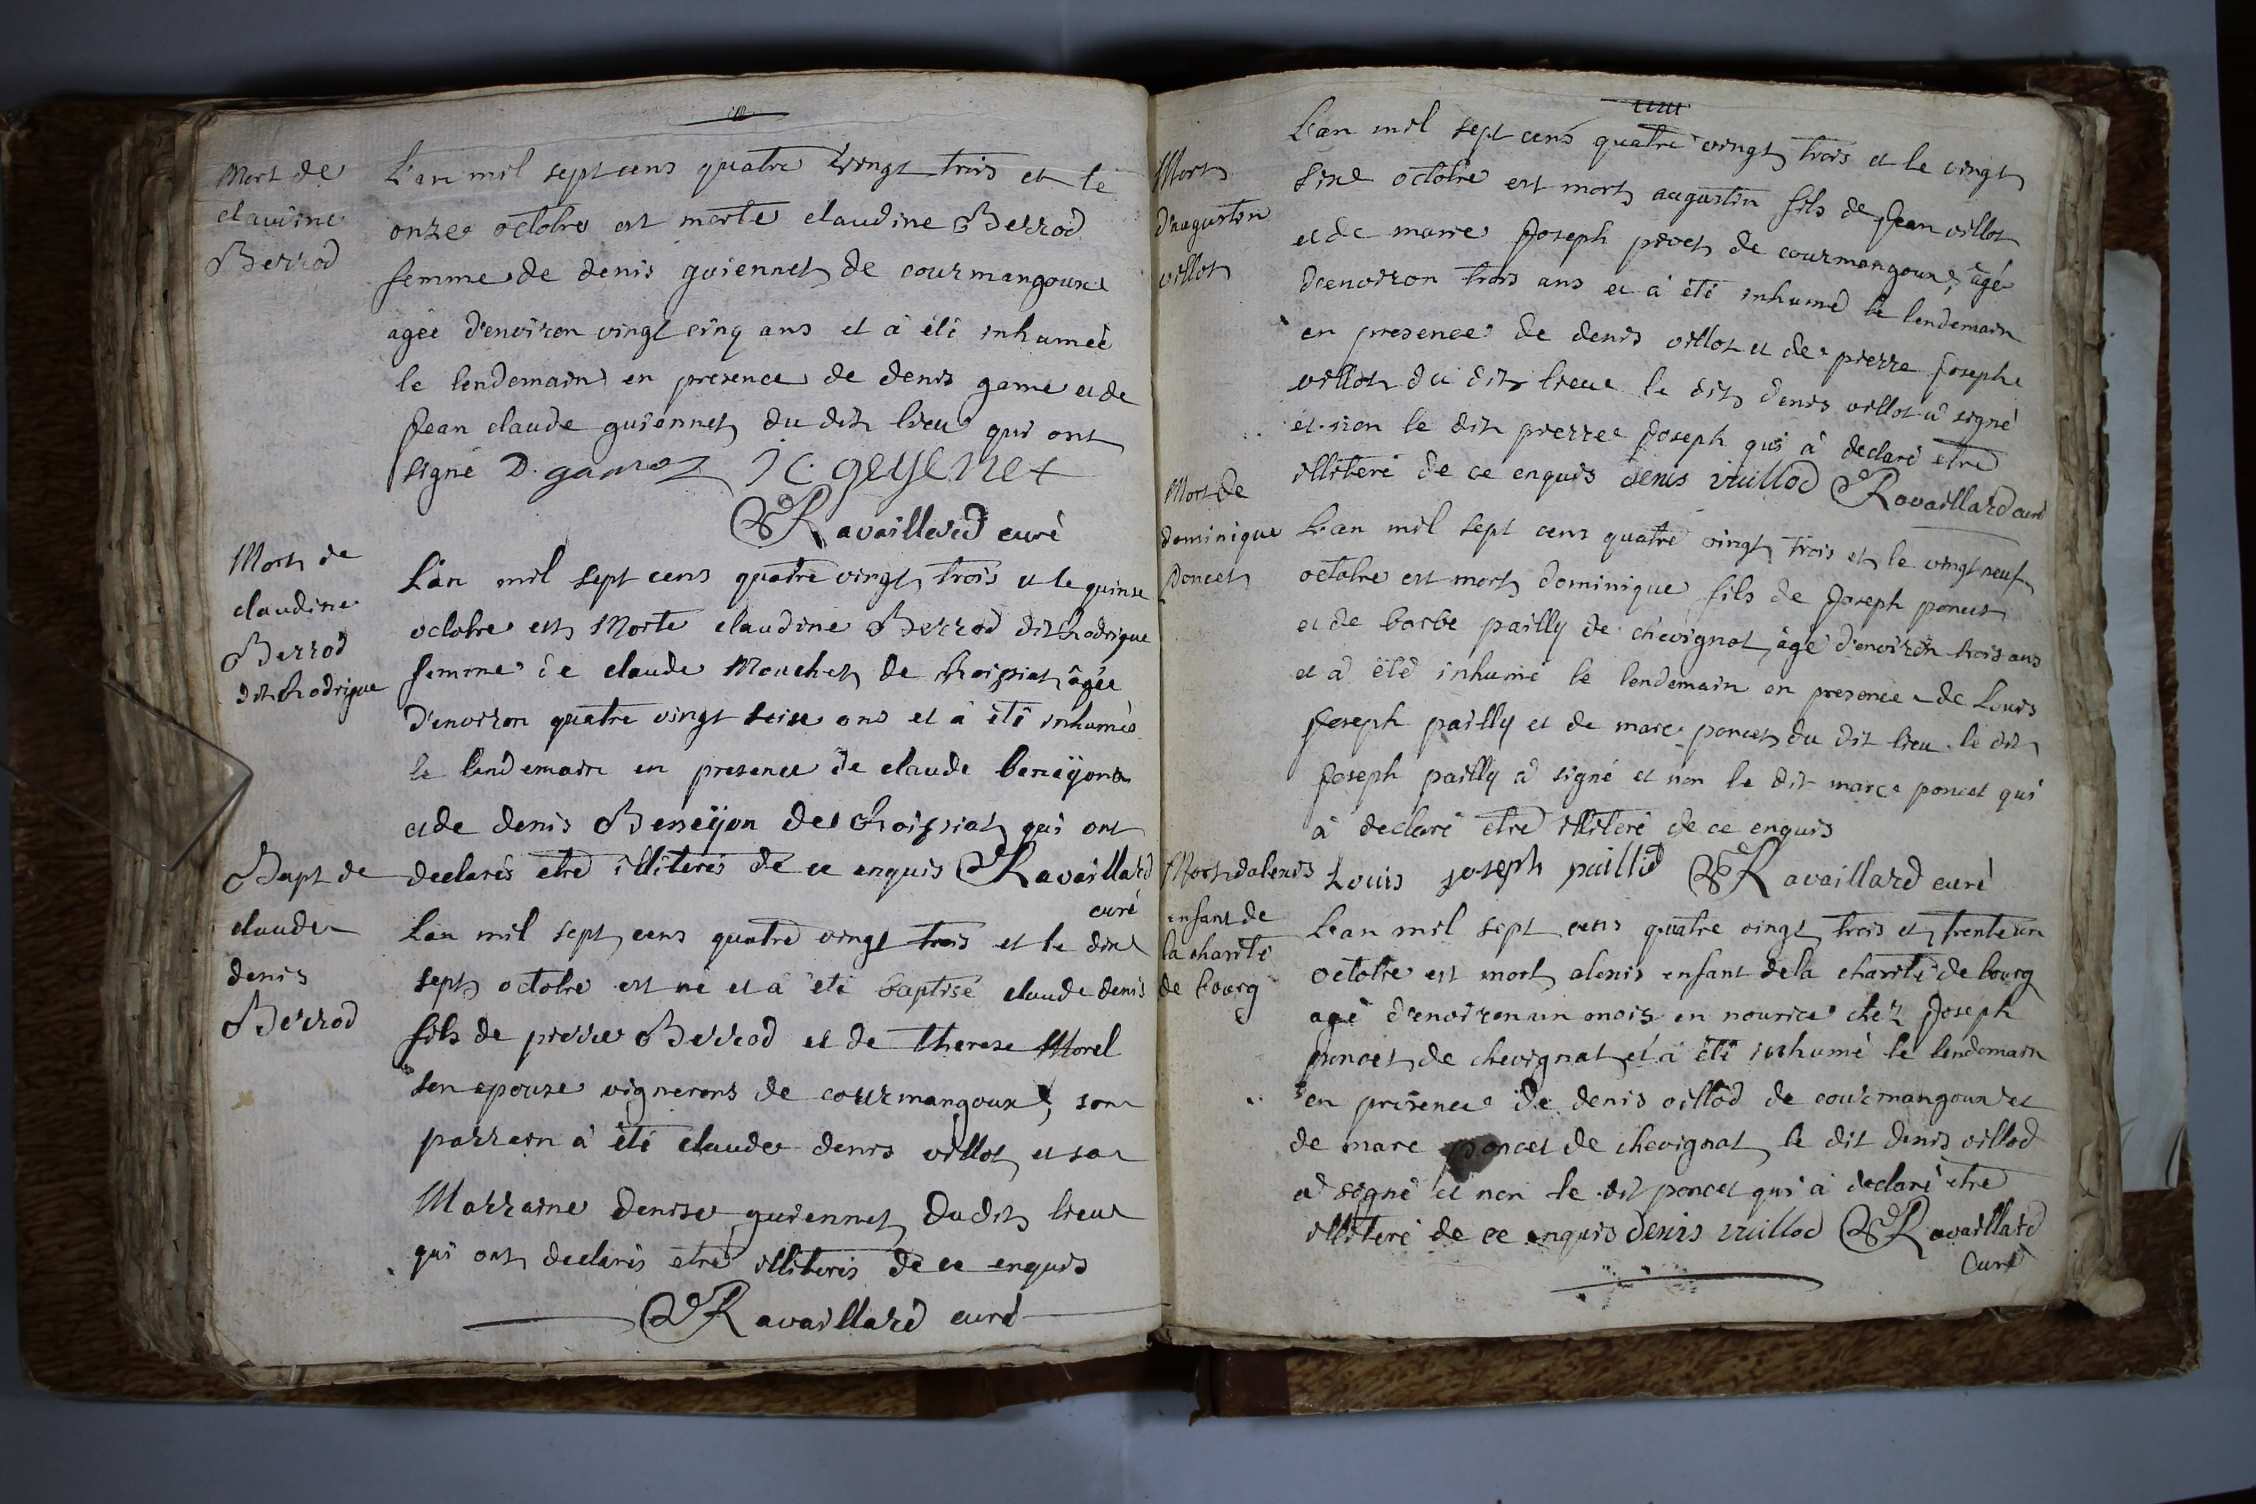 Mort de
claudine
Berrod
L'an mil sept cens quatre vingt trois et le
onze octobre est morte claudine Berrod
femme de denis guiennet de courmangoux
agée d'environ vingt cinq ans et à été inhumée
le lendemain en presence de denis game et de
Jean claude guiennet du dit lieu qui ont
signé D. gamoz J C. geyenet
Ravaillard curé
Mort de
claudine
Berrod
dit hodrique
L'an mil sept cens quatre vingt trois et le quinse
octobre est Morte claudine Berrod dit hodrique
femme de claude Mouchet de choissiat âgée
d'environ quatre vingt seise ans et à été inhumée
le lendemain en presence de claude beneÿon
et de denis Beneÿon de choissiat qui ont
declarés etre illiterés de ce enquis Ravaillard
curé
Bapt de
claude
denis
Berrod
L'an mil sept cens quatre vingt trois et le dix
sept octobre est né et à été baptisé claude denis
fils de pierre Berrod et de therese Morel
son epouse vignerons de courmangoux, son
parrain à été claude denis villot et sa
Marraine denise guiennet du dit lieu
qui ont declarés etre illiterés de ce enquis
Ravaillard curé
Mort
d'augustin
villot
L'an mil sept cens quatre vingt trois et le vingt
sixe octobre est mort augustin fils de Jean villot
et de marie Joseph pivet de courmangoux, âgé
d'environ trois ans et à été inhumé le lendemain
en presence de denis villot et de pierre Joseph
villot du dit lieu le dit denis villot a signé
et non le dit pierre Joseph qui à declaré etre
illiteré de ce enquis denis vuillod Ravaillard curé
Mort de
dominique
poncet
L'an mil sept cens quatre vingt trois et le vingt neuf
octobre est mort dominique fils de Joseph poncet
et de barbe pailly de chevignat, âgé d'environ trois ans
et à été inhumé le lendemain en presence de Louis
Joseph pailly et de marc poncet du dit lieu le dit
Joseph pailly a signé et non le dit marc poncet qui
à declaré etre illiteré de ce enquis
Louis joseph paillid Ravaillard curé
Mort dalexis
enfant de
la charité
de bourg
L'an mil sept cens quatre vingt trois et trente un
octobre est mort alexis enfant de la charité de bourg
agé d'environ un mois en nourice chez Joseph
poncet de chevignat et à été inhumé le lendemain
en presence de denis villod de courmangoux et
de marc poncet de chevignat le dit denis villod
a signé et non le dit poncet qui à declaré etre
illiteré de ce enquis denis vuillod Ravaillard
Curé